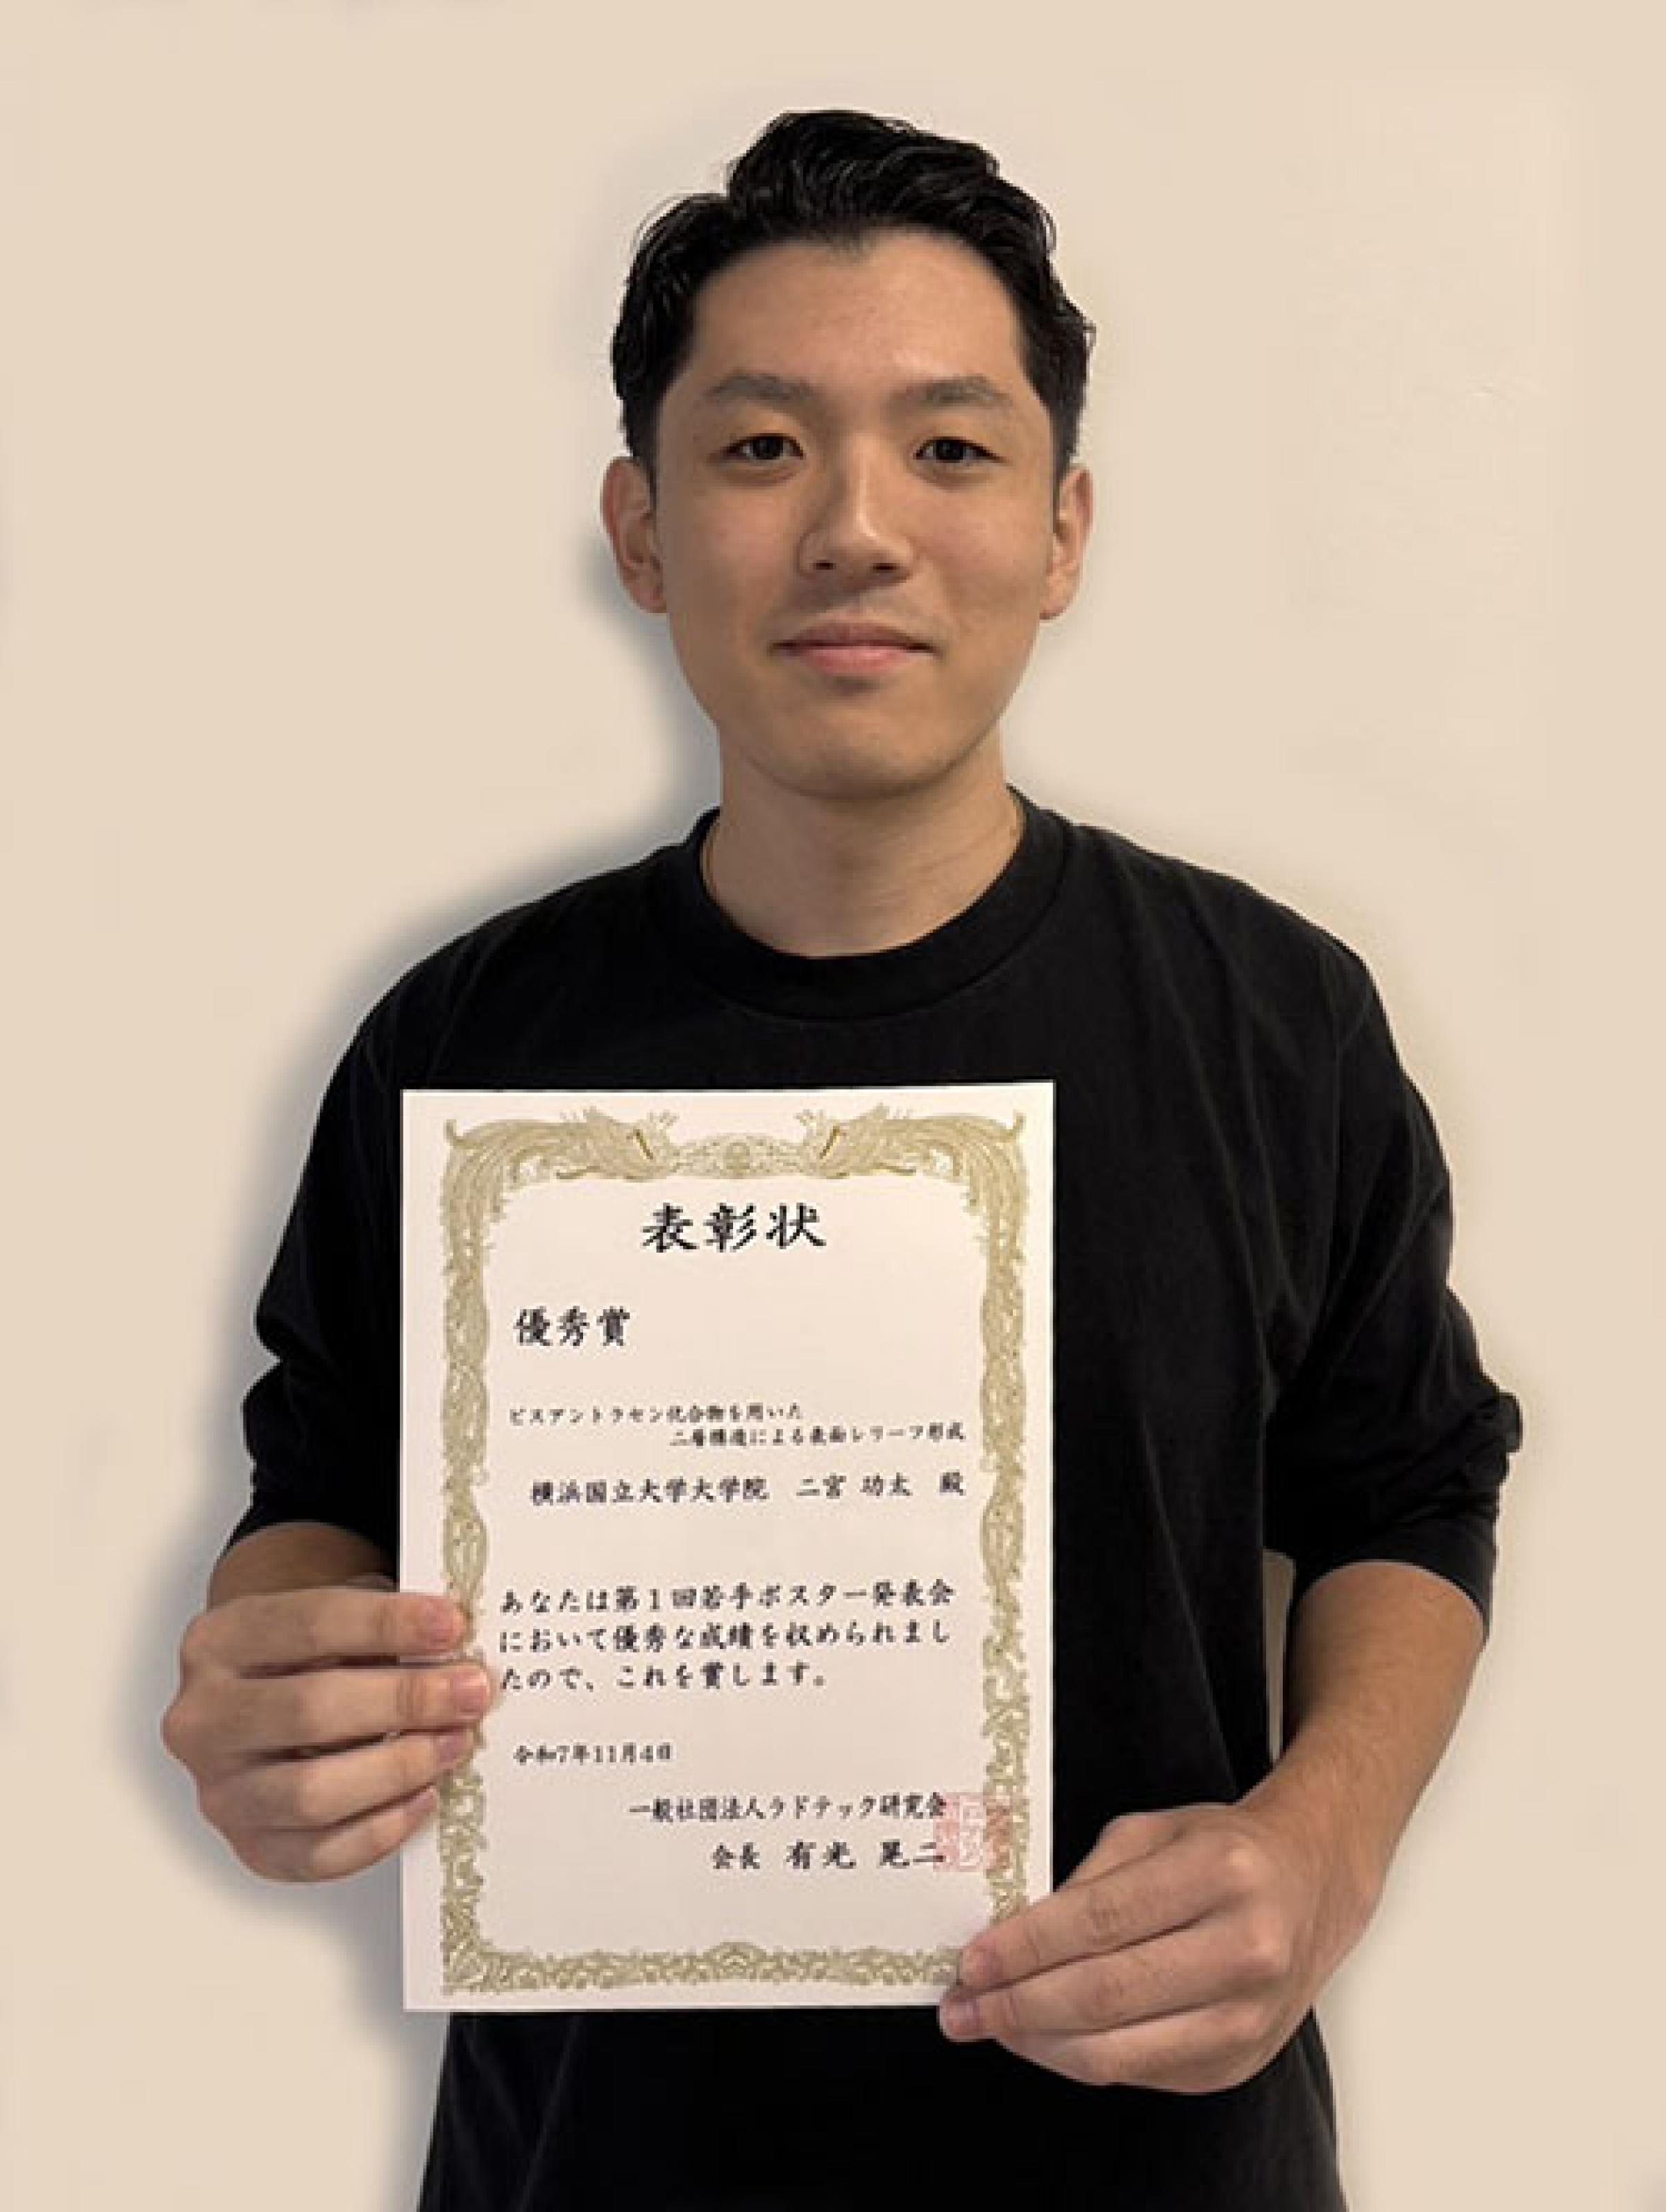 表彰状
優秀賞
ビスアントラセン化合物を用いた
二層構造による表面レリーフ形成
横浜国立大学大学院 二宮 功太 殿
あなたは第1回若手ポスター発表会
において優秀な成績を収められまし
たので、これを賞します。
令和7年11月4日
一般社団法人ラドテック研究会
会長 有光 晃二